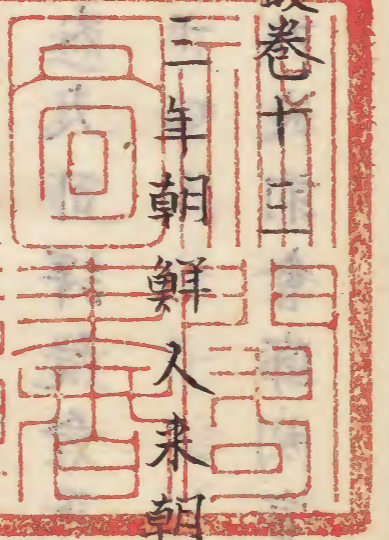 卷十三
三年朝鮮人来朝